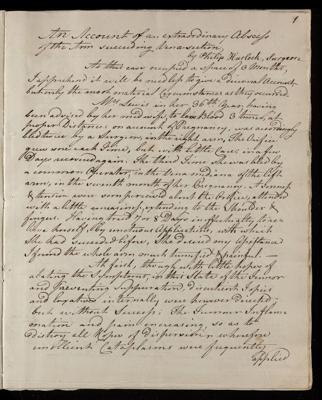 1
An Account of an extraordinary Abscess
of the Arm succeeding Venæsection,
by Philip Hurlock, Surgeon
As this case occupied a space of 3 Months,
I apprehend it will be needless to give a Diurnal Account,
but only the most material Circumstances as they occurred.
Mrs Lewis in her 36th Year, having
been advised by her midwife, to lose Blood 3 times, at
proper Distances on account of Pregnancy, was accordingly
bled twice by a Surgeon, in the right arm, The Orifice
grew sore each Time, but with little Care, in a few
Days recovered again. The third Time She was bled by
a common Operator, in the Vena mediana of the left
arm, in the seventh month of her Pregnancy. A Tumor
& tension were soon perceived about the Orifice, attended
with a little uneasiness, extending to the Shoulder &
fingers. Having tried 7 or 8 Days ineffectually to
herself, by unctuous Applications, with which
She had succeeded before, She desired my Assistance
I found the whole arm much tumified & painful. —
At first, though with little hopes of
the Symptoms, in this state of the Tumor
and preventing Suppuration, discutient Topics
and internally were however Directed;
but without Success: The Tumor Inflam-
mation and pain increasing, so as to
Destroy all Hopes of Dispersion, wherefore
emollient Cataplasms were frequently
applied